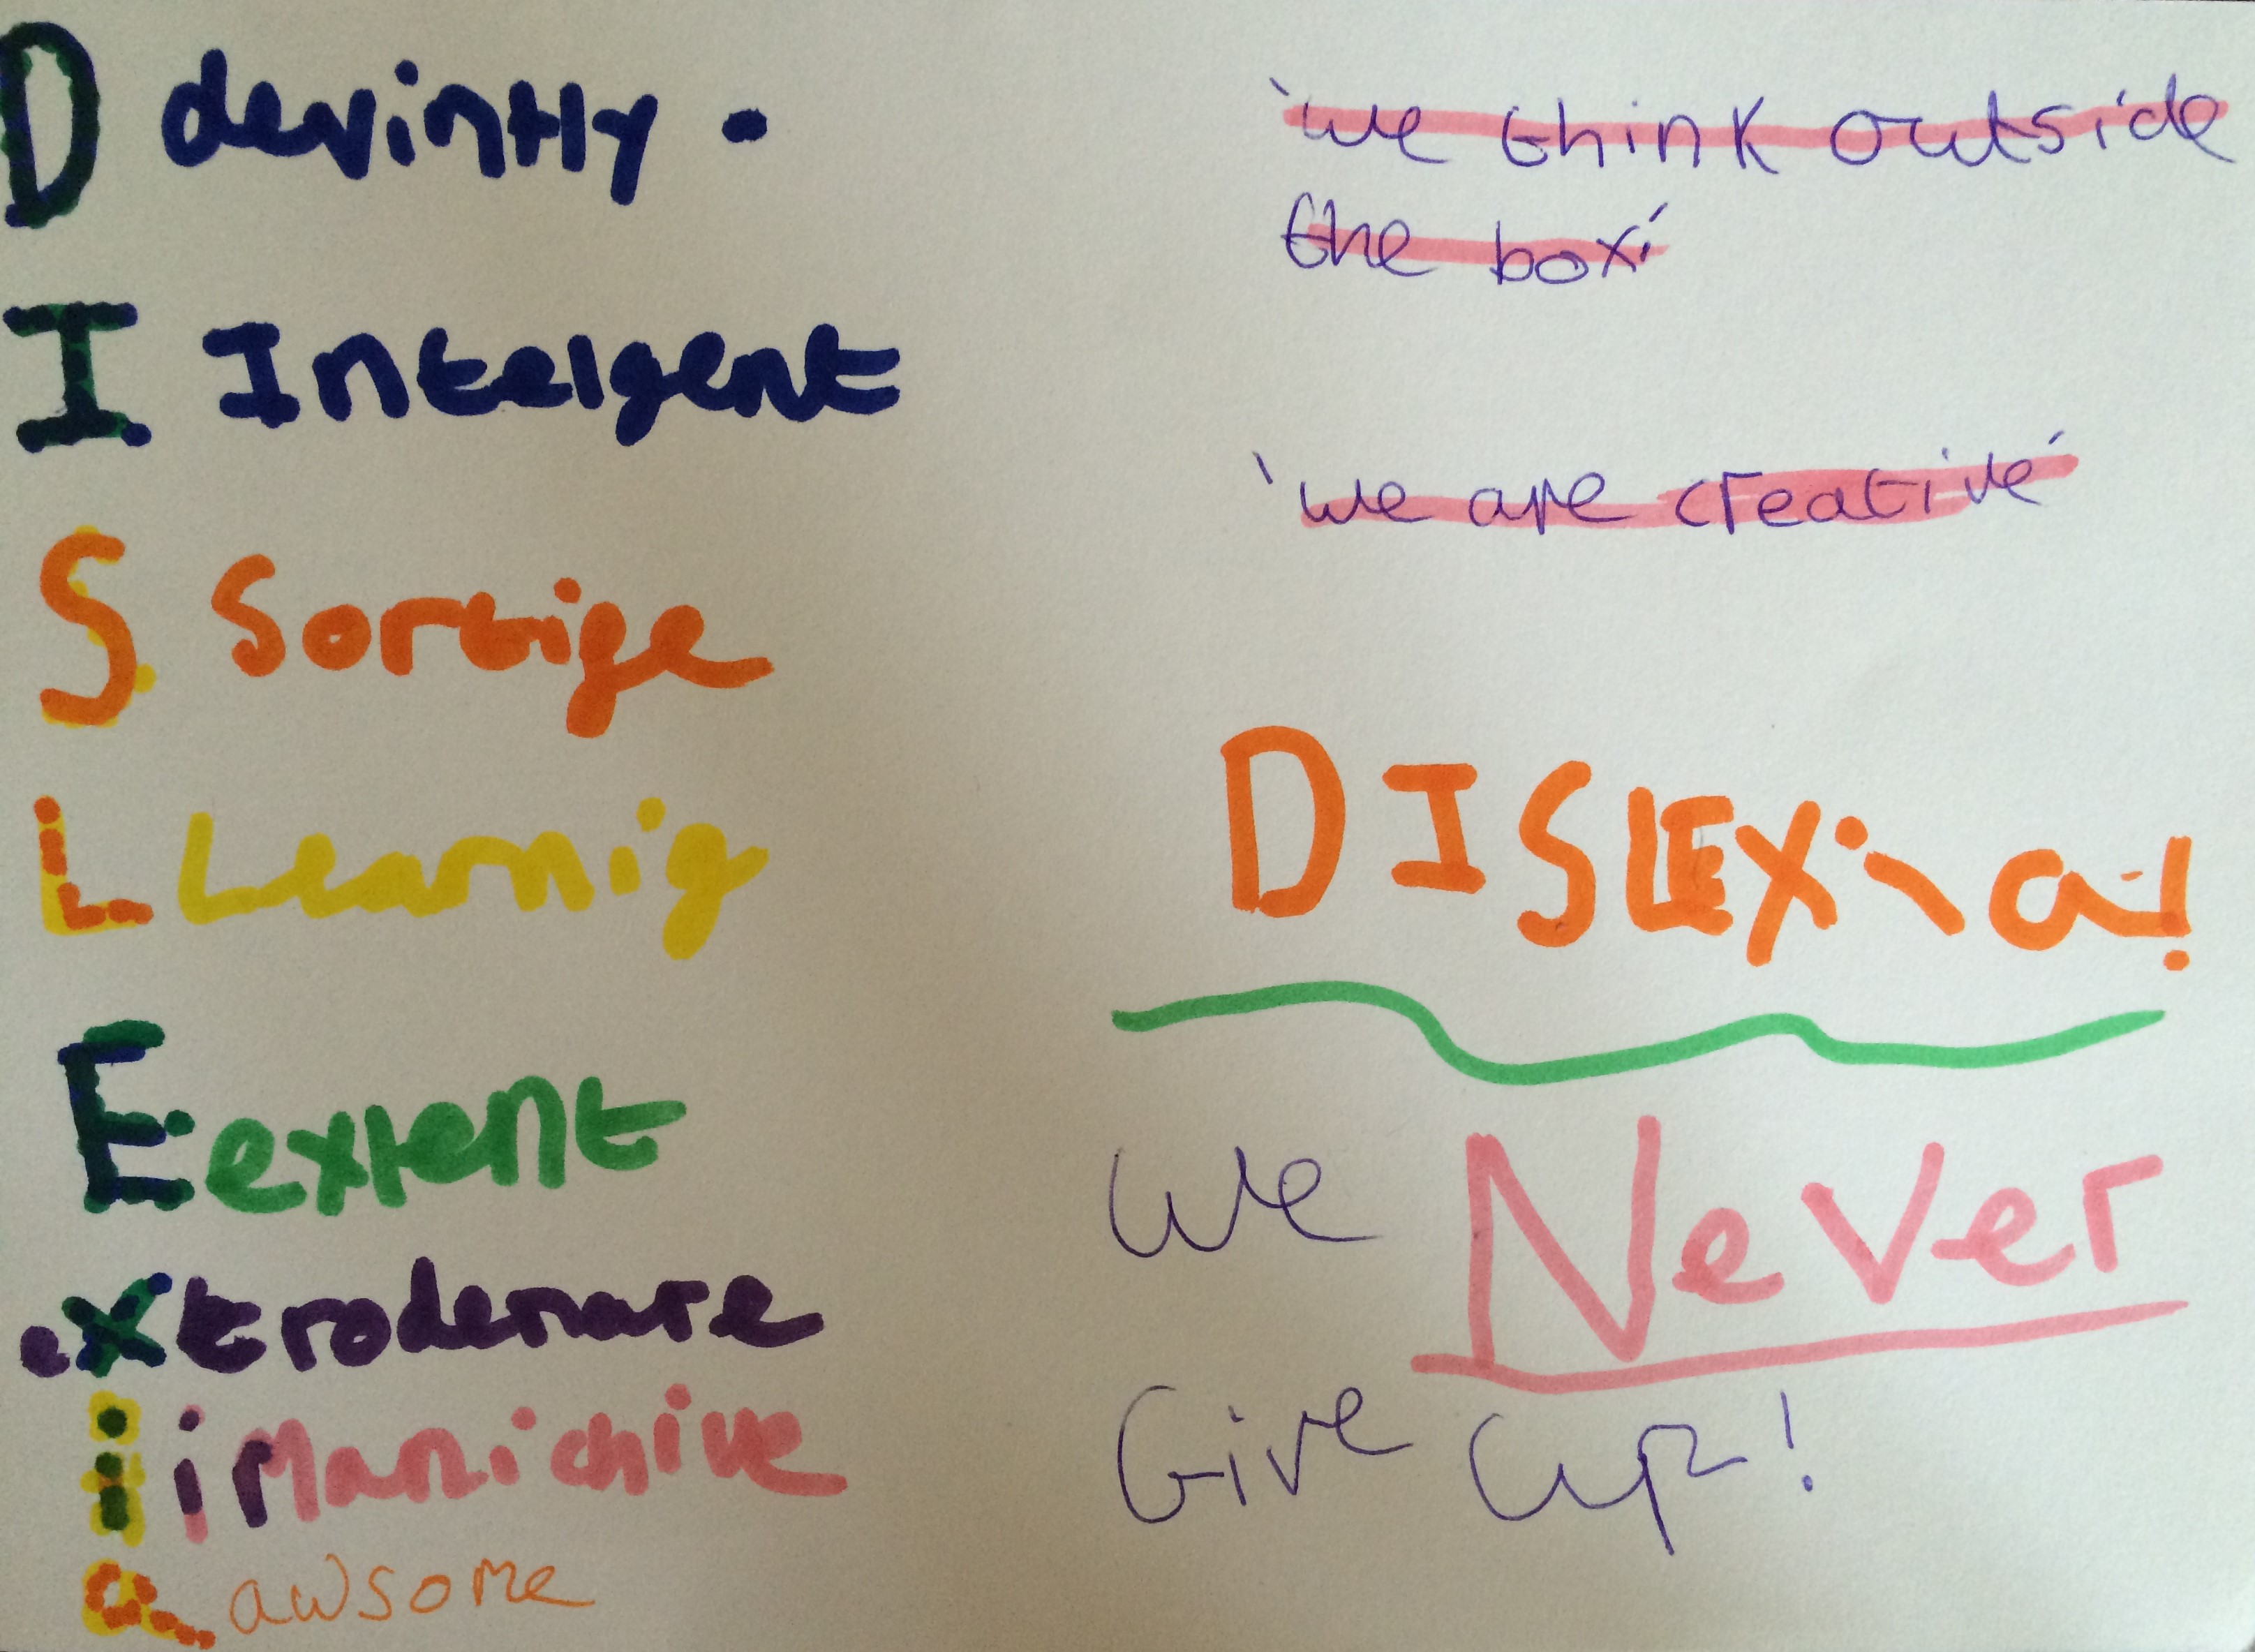 D devintly.
I Intelgent
S Sortige
L Learnig
E extent
extrodenare
i imanichive
a awsome
'we think outside
the box'
'we are creative'
DISLEXia!
we Never
Give up!